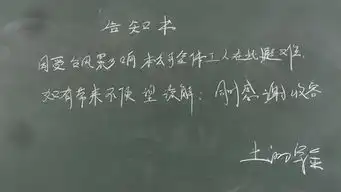 告知书
因受台风影响 本公司全体工人在此避难
如有带来不便 望谅解：同时感谢收容